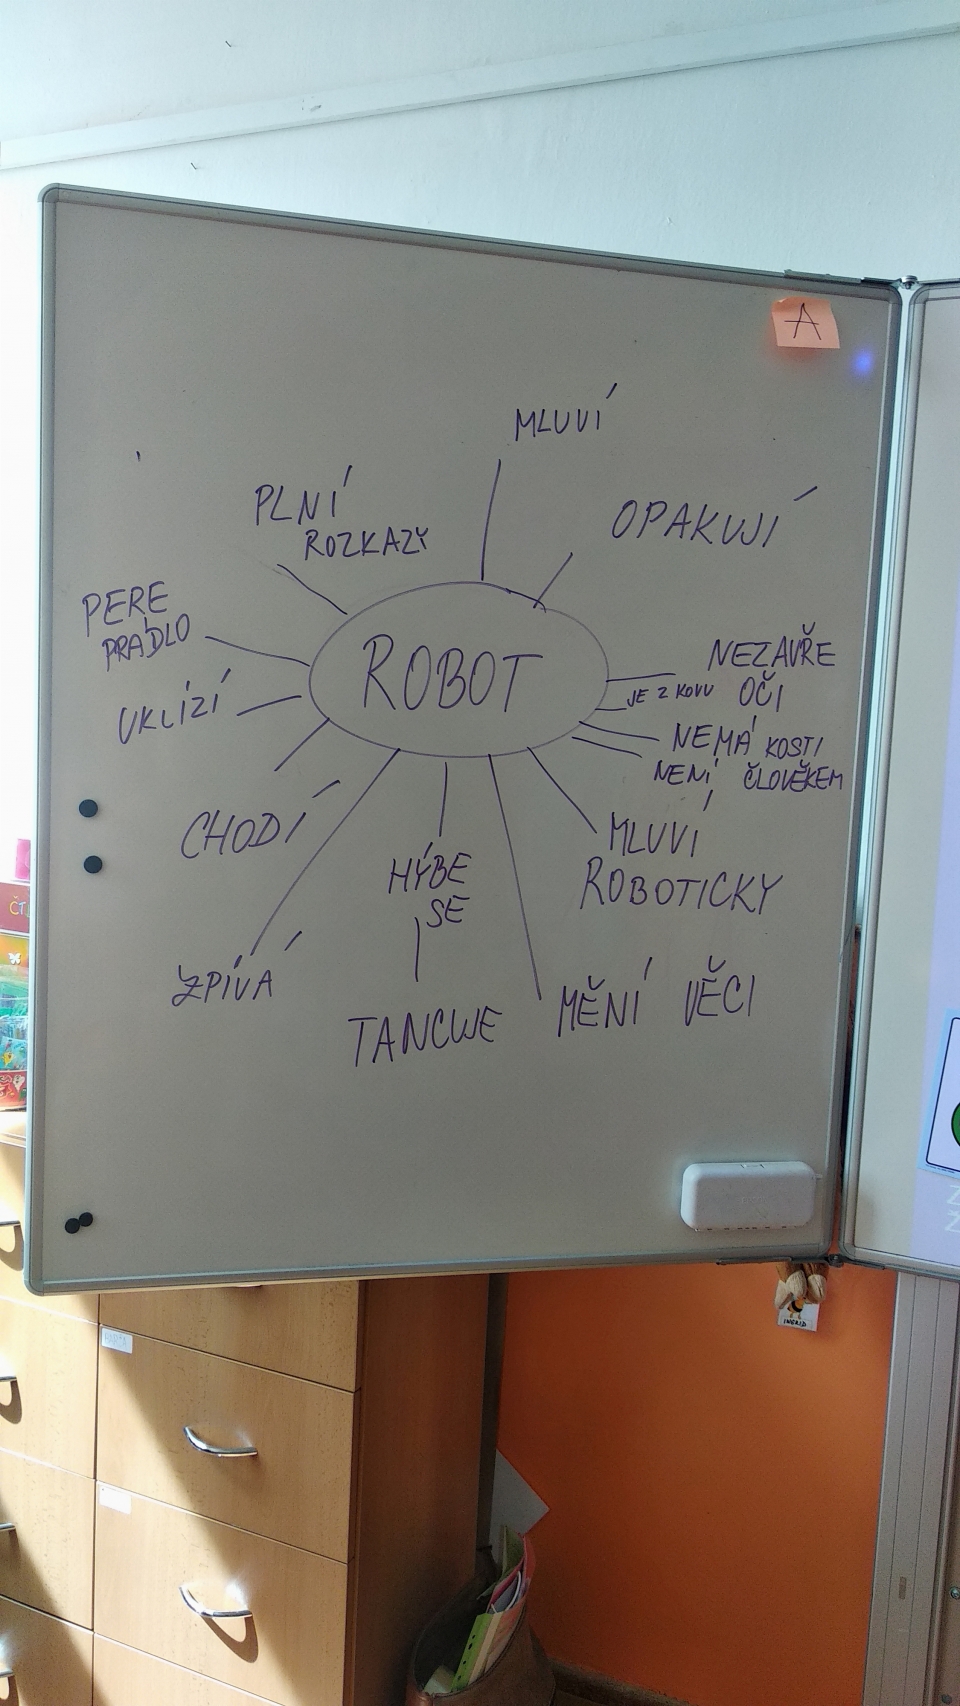 A
MLUVÍ
PLNÍ
ROZKAZY
OPAKUJÍ
PERE
PRÁDLO
ROBOT
NEZAVŘE
OČI
JE Z KOVU
UKLÍZÍ
NEMÁ KOSTI
NENÍ ČLOVĚKEM
CHODÍ
MLUVÍ
ROBOTICKY
HÝBE
SE
ZPÍVÁ
TANCUJE
MĚNÍ VĚCI
INGRID